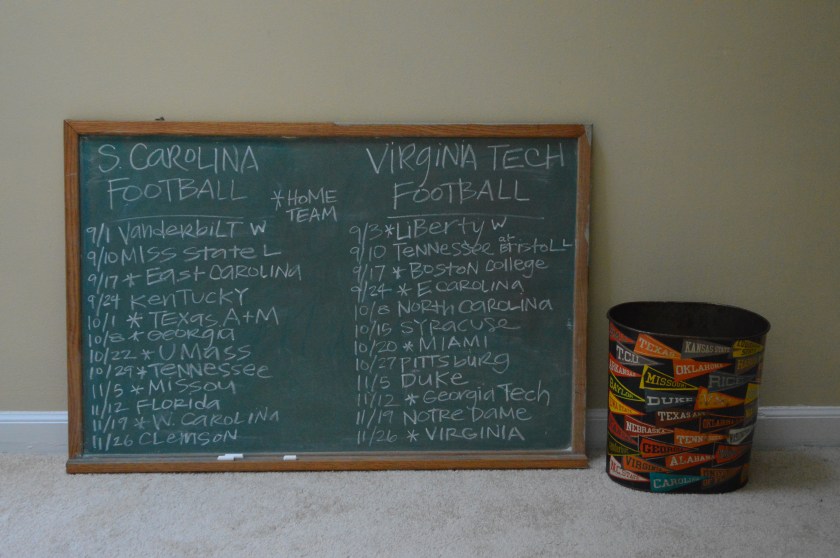 S. CAROLINA
FOOTBALL
* HOME
TEAM
9/1 VANDERBILT W
9/10 MISS STATE L
9/17 * EAST CAROLINA
9/24 KENTUCKY
10/1 * TEXAS A+M
10/8 * GEORGIA
10/22 * UMASS
10/29 * TENNESSEE
11/5 * MISSOU
11/12 FLORIDA
11/19 * W. CAROLINA
11/26 CLEMSON
VIRGINIA TECH
FOOTBALL
9/3 * LIBERTY W
9/10 TENNESSEE at BRISTOL L
9/17 * BOSTON COLLEGE
9/24 * E CAROLINA
10/8 NORTH CAROLINA
10/15 SYRACUSE
10/20 * MIAMI
10/27 PITTSBURG
11/5 DUKE
11/12 * GEORGIA TECH
11/19 NOTRE DAME
11/26 * VIRGINIA
TEXAS
KANSAS STATE
T.C.U.
ARKANSAS
OKLAHOMA
BAYLOR
MISSOURI
RICE
DUKE
TEXAS
NEBRASKA
OKLAHOMA
TENN
GEORGIA
ALABAMA
VIRGINIA
CAROLINA